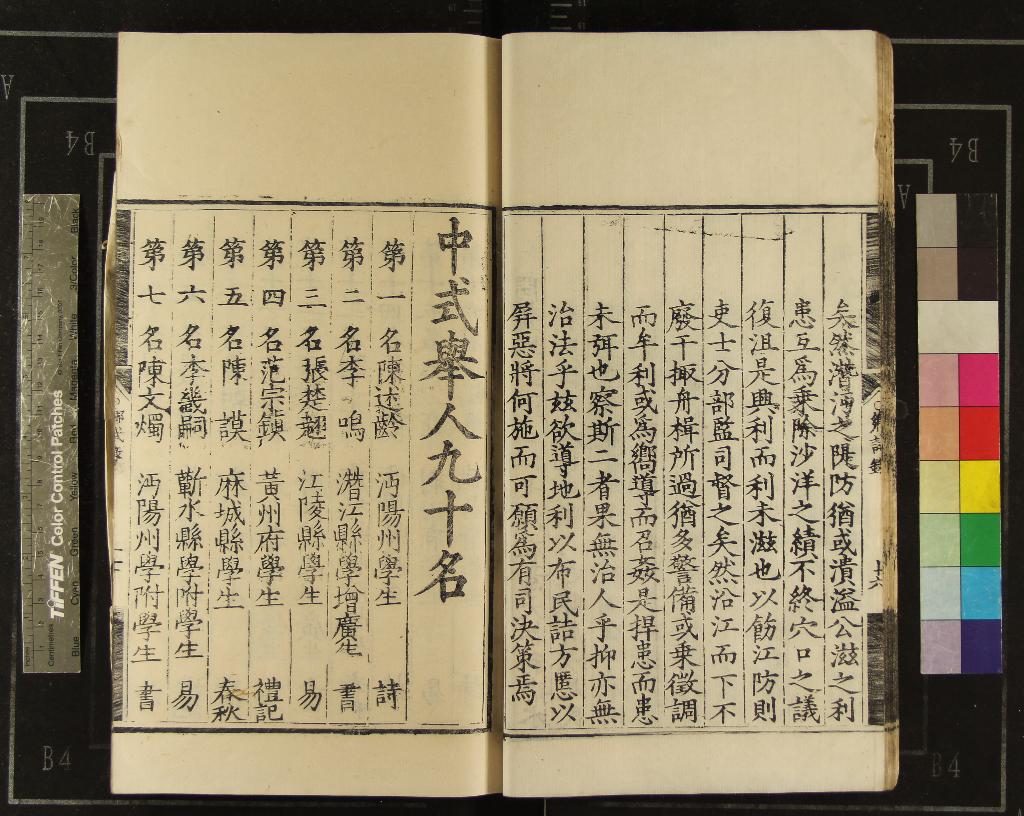 矣然潛沔之隄防猶或潰溢公滋之利
患互爲乗除沙洋之績不終穴口之議
復沮是興利而利未滋也以飭江防則
吏士分部監司督之矣然沿江而下不
廢干掫舟楫所過猶多警備或乗徵調
而牟利或爲嚮導而召姦是捍患而患
未弭也察斯二者果無治人乎抑亦無
治法乎兹欲導地利以布民詰方慝以
屏惡將何施而可願爲有司決策焉
中式舉人九十名
第一名陳述齡 沔陽州學生 詩
第二名李鳴 潛江縣學增廣生 書
第三名張楚翹 江陵縣學生 易
第四名范宗鎮 黃州府學生 禮記
第五名陳謨 麻城縣學生 春秋
第六名李幾嗣 蘄水縣學附學生 易
第七名陳文燭 沔陽州學附學生 書
十六
TIFFEN Color Control Patches
Centimetres
Blue
Cyan
Green
Yellow
Red
Magenta
White
3/Color
Black
B4
B4
B4
B4
A
A